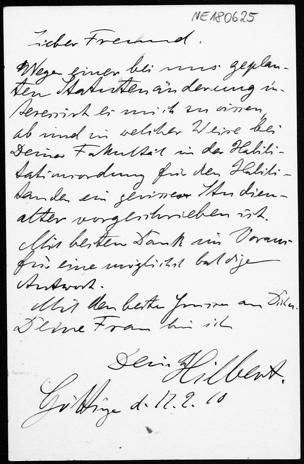 NE180625
Lieber Freund.
Wegen einer bei uns geplan-
ten Statutenänderung in-
teressirt es mich zu wissen
ob und in welcher Weise bei
Deiner Fakultät in der Habili-
tationsordnung für den Habili-
tanden ein gewisses Studien-
alter vorgeschrieben ist.
Mit bestem Dank im Voraus
für eine möglichst baldige
Antwort.
Mit den besten Grüssen an Dich u.
Deine Frau bin ich
Dein Hilbert.
Göttingen d. 17.2.10